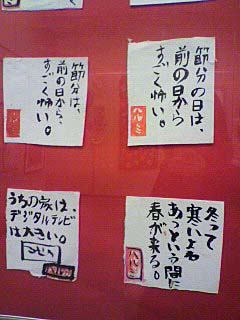 節分の日は、
前の日から
すごく怖い。
ハルミ
節分は、
前の日から、
すごく怖い。
冬って
寒いよね
あっという間に
春が来る。
ハルミ
うちの家は、
デジタルテレビ
は大きい。